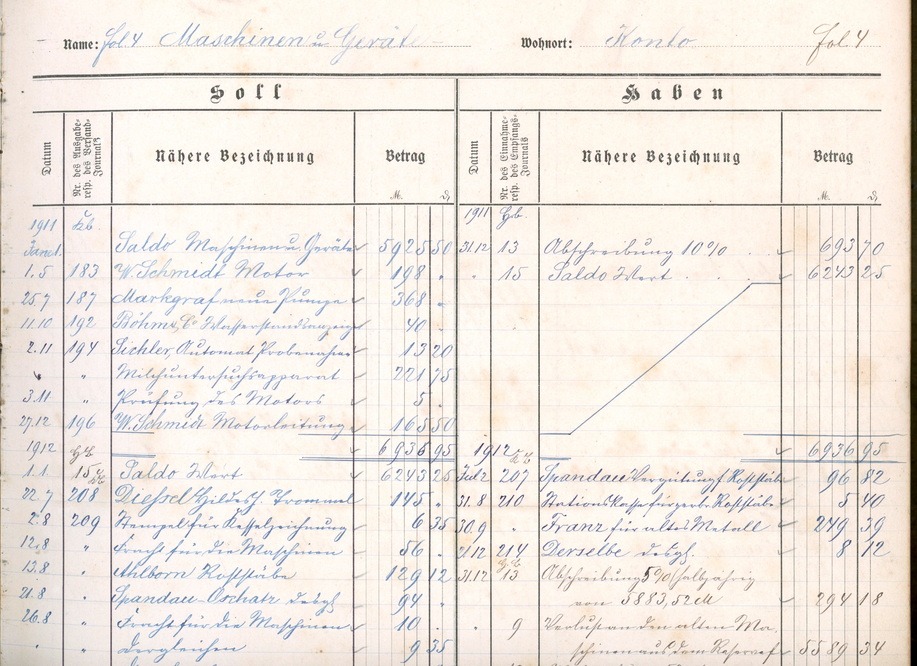 Name: fol 4 Maschinen u Geräte Wohnort: Konto fol 4
Soll Haben
Datum Nr. des Ausgabe- resp. des Versand-Journals Nähere Bezeichnung Betrag M. Datum Nr. des Einnahme- resp. des Empfangs-Journals Nähere Bezeichnung Betrag M.
1911 1911
Saldo Maschinen u. Geräte 5925 50 31.12 13 Abschreibung 10% 693 70
1.5 183 W. Schmidt Motor 198 " " 15 Saldo Wert 6243 25
25.7 187 Markgraf neue Pumpe 368 "
11.10 192 Böhme, Wasserstandsanzeige 40 -
2.11 194 Sichler, Automat Probenahme 13 20
" " Milchuntersuchsapparat 221 75
3.11 " Prüfung des Motors 5
27.12 196 W. Schmidt Motorleitung 165 50
1912 6936 95 1912 6936 95
1.1. 15 Saldo Wert 6243 25 207 Spandau Vergütung f Roststäbe 96 82
22.7 208 Hildesh. Trommel 145 " 31.8 210 Stationskasse für Roststäbe 5 40
2.8 209 Stempel für Kesselzeichnung 6 35 30.9 " Franz für altes Metall 249 39
12.8 " Fracht für die Maschinen 56 " 21.12 214 Derselbe desgl. 8 12
13.8 " Ahlborn Roststäbe 129 12 31.12 13 Abschreibung 5% halbjährig
21.8 " Spandau-Oschatz desgl 94 " von 5883,52 M 294 18
26.8 " Fracht für die Maschinen 10 " " 9 Verlust an den alten Ma-
" " Dergleichen 9 35 schinen aus dem Reservef 5589 34